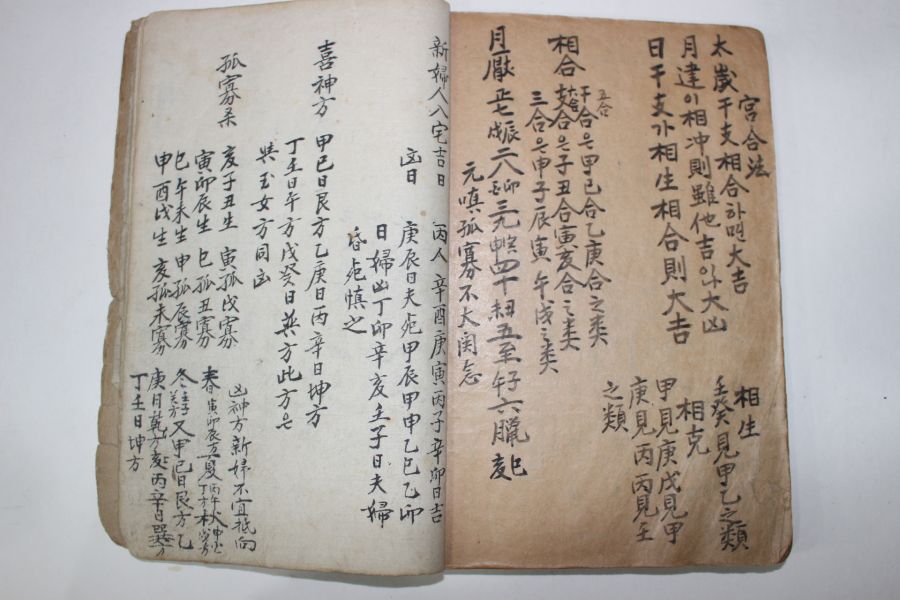 宮合法
太歲干支相合하면大吉
月建이相冲則雖他吉이나大凶
日干支가相生相合則大吉
相生
壬癸見甲乙之類
相克
甲見庚戊見甲
庚見丙丙見壬
之類
相合
五合
干合은甲己合乙庚合之类
六合
支合은子丑合寅亥合之类
三合은申子辰寅午戌之类
月厭 正七 辰戌 二八 三九 四十 五至 六臘 巳亥
元嗔孤寡不大関念
新婦人入宅吉日 丙人 辛酉庚寅丙子辛卯日吉
凶日
庚辰日夫死甲辰甲申乙巳乙卯
日婦凶丁卯辛亥壬子日夫婦
昏死慎之
喜神方
甲己日艮方乙庚日丙辛日坤方
丁壬日午方戊癸日巽方此方은
與玉女方同凶
孤寡杀
亥子丑生 寅孤戌寡
寅卯辰生 巳孤丑寡
巳午未生 申孤辰寡
申酉戌生 亥孤未寡
凶神方新婦不宜抵向
春寅卯辰
冬 又甲己日艮方乙
庚日乾方 丙辛日巽方
丁壬日坤方